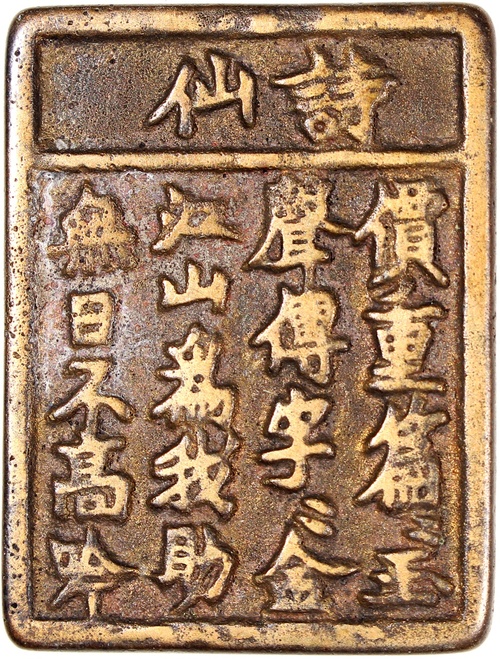 詩仙
價重篇〻玉
聲傳字〻金
江山為我助
無日不高吟